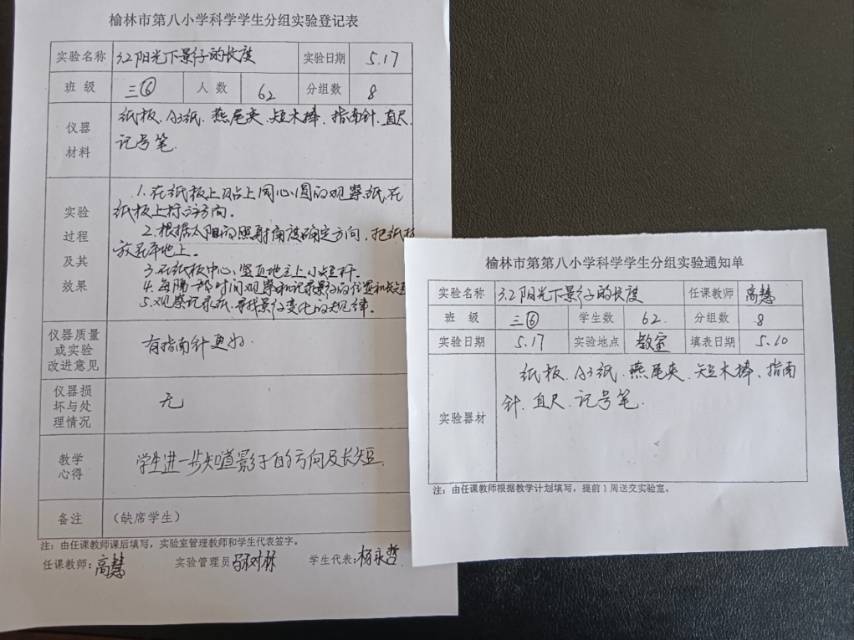 榆林市第八小学科学学生分组实验登记表
实验名称 3.2阳光下影子的长度 实验日期 5.17
班级 三⑥ 人数 62 分组数 8
仪器材料 纸板、A3纸、燕尾夹、短木棒、指南针、直尺、
记号笔.
实验过程及其效果 1.在纸板上贴上同心圆的观察纸,在
纸板上标注方向。
2.根据太阳的照射角度确定方向,把纸板
放在平地上。
3.在纸板中心,竖直地立上小短杆。
4.每隔一段时间观察和记录影子的位置和长短
5.观察记录纸,寻找影子变化的规律。
仪器质量或实验改进意见 有指南针更好.
仪器损坏与处理情况 无
教学心得 学生进一步知道影子的方向及长短.
备注 (缺席学生)
注:由任课教师课后填写,实验室管理教师和学生代表签字。
任课教师:高慧 实验管理员 树林 学生代表:杨永哲
榆林市第第八小学科学学生分组实验通知单
实验名称 3.2阳光下影子的长度 任课教师 高慧
班级 三⑥ 学生数 62. 分组数 8
实验日期 5.17 实验地点 教室 填表日期 5.10
实验器材 纸板、A3纸、燕尾夹、短木棒、指南
针、直尺、记号笔.
注:由任课教师根据教学计划填写,提前1周送交实验室。